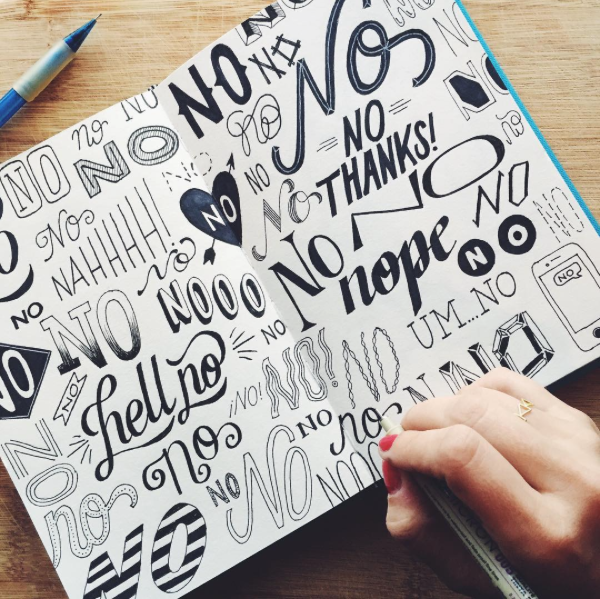 NO
NO
NO
NO
no
NO
NO
NO
NO
NO
NO
No
NO
NO
THANKS!
NO
NO
No
NAHHHH!
no
NO
NO
No
NO
NO
NO
NO
nope
NO
NO
NO
NO
NO
NOOO
UM...NO
NO
NO
NO
hell no
NO
NO!
NO!
NO
NO
NO
NO
No
NO
no
no
NO
NO
NO
NO